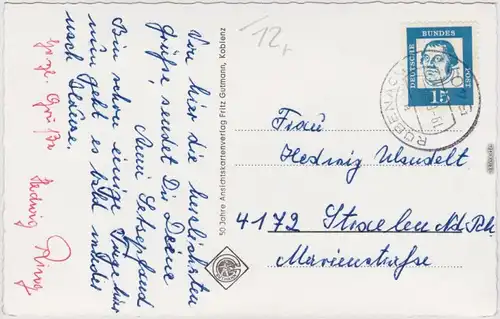 Von hier die herzlichsten
Grüße sendet Dir Deine
Anni
Bin schon einige Tage hier
nun geht es bald wieder
nach Hause.
Herzl. Grüße
Hedwig
50 Jahre Ansichtskartenverlag Fritz Gutmann, Koblenz
12,
DEUTSCHE
BUNDES
POST
15
Frau
Hedwig
4172 Straelen Ndrh
Marienstraße